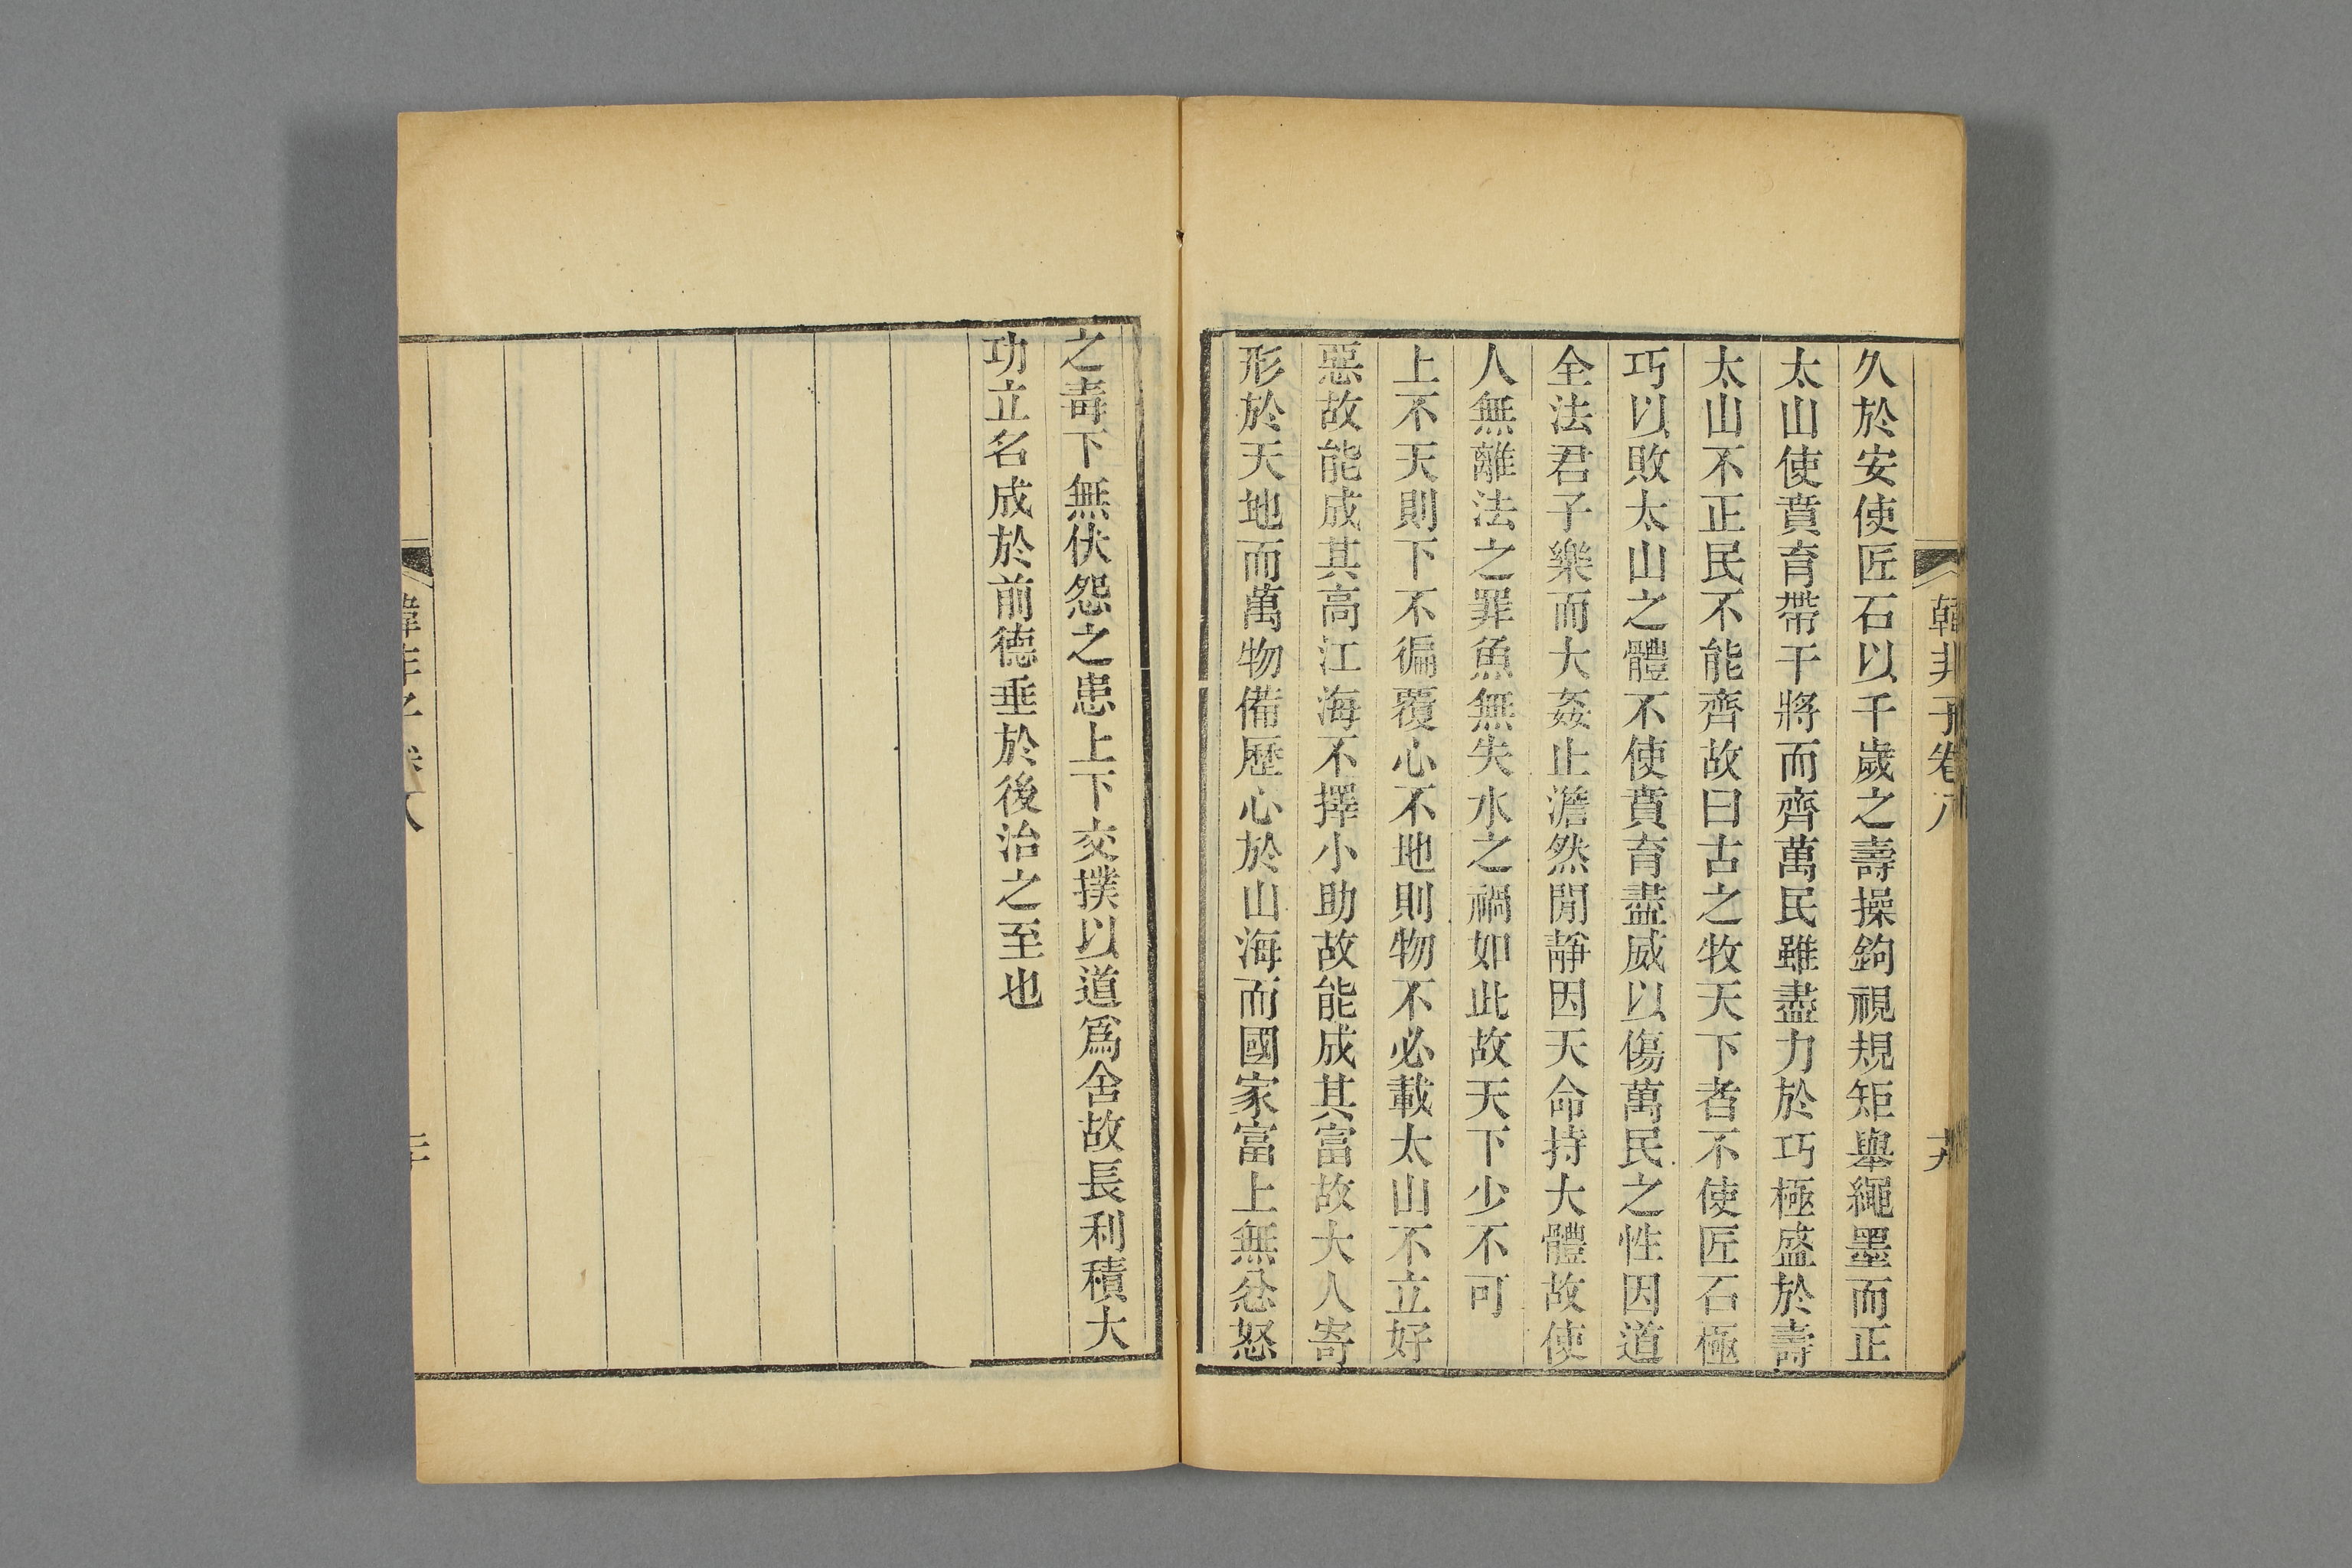 韓非子卷八
久於安使匠石以千歲之壽操鉤視規矩舉繩墨而正
太山使賁育帶干將而齊萬民雖盡力於巧極盛於壽
太山不正民不能齊故曰古之牧天下者不使匠石極
巧以敗太山之體不使賁育盡威以傷萬民之性因道
全法君子樂而大姦止澹然閒靜因天命持大體故使
人無離法之罪魚無失水之禍如此故天下少不可
上不天則下不徧覆心不地則物不必載太山不立好
惡故能成其高江海不擇小助故能成其富故大人寄
形於天地而萬物備歷心於山海而國家富上無忿怒
之毒下無伏怨之患上下交撲以道爲舍故長利積大
功立名成於前德垂於後治之至也